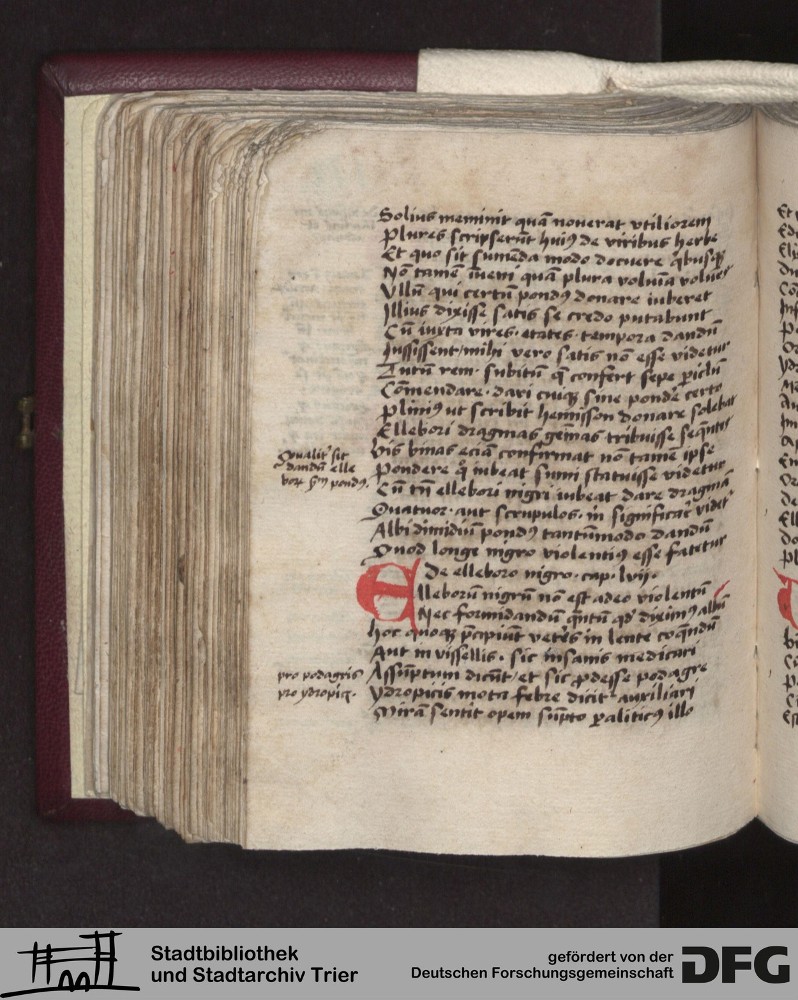 Solius meminit quā nouerat vtiliorem
Plures scripserūt huiꝰ de viribus herbe
Et quo sit sumēda modo docuere qͥbusqꝫ
Nō tamē īueni quā plura volūīa voluēs
Vllū qui certū pondꝰ donare iuberet
Illius dixisse satis se credo putabunt
Cū iuxta vires· etates· tempora dandū
Iussissent/mihi vero satis nō esse videtur
Tutū rem· subitū qͣ confert sepe ꝑiclū
Cōmendare· dari cuiqꝫ sine pondē certo
Pliniꝰ ut scribit hemisson donare solebat
Ellebori dragmas gēmas tribuisse sequēter
bis binas eciā confirmat nō tamē ipse
Qualit' sit
dandū elle
borꝝ sm pondꝰ.
Pondere qͦ iubeat sumi statuisse videtur
Cū tn̄ ellebori nigri iubeat dare dragmā
Quatuor· aut scrupulos· in significat' videt'
Albi dimidiū pondꝰ tantūmodo dandū
Quod longe nigro violentiꝰ esse fatetur
De elleboro nigro· cap· lvii·
Elleborū nigrū nō est adeo violentū
Nec formidandū qͣntū qd' diximꝰ albū
hoc quoqꝫ p̄cipiūt veteres in lente coqͥndū
Aut in vissellis· sic insanis medicari
pro podagris
pro ydropicꝭ.
Assūptum dicūt· et sic ꝓdesse podagre
Ydropicis mota febre dicit' auxiliari
Mirā sentit opem sūpto ꝑaliticꝰ illo
Stadtbibliothek
und Stadtarchiv Trier
gefördert von der
Deutschen Forschungsgemeinschaft
DFG